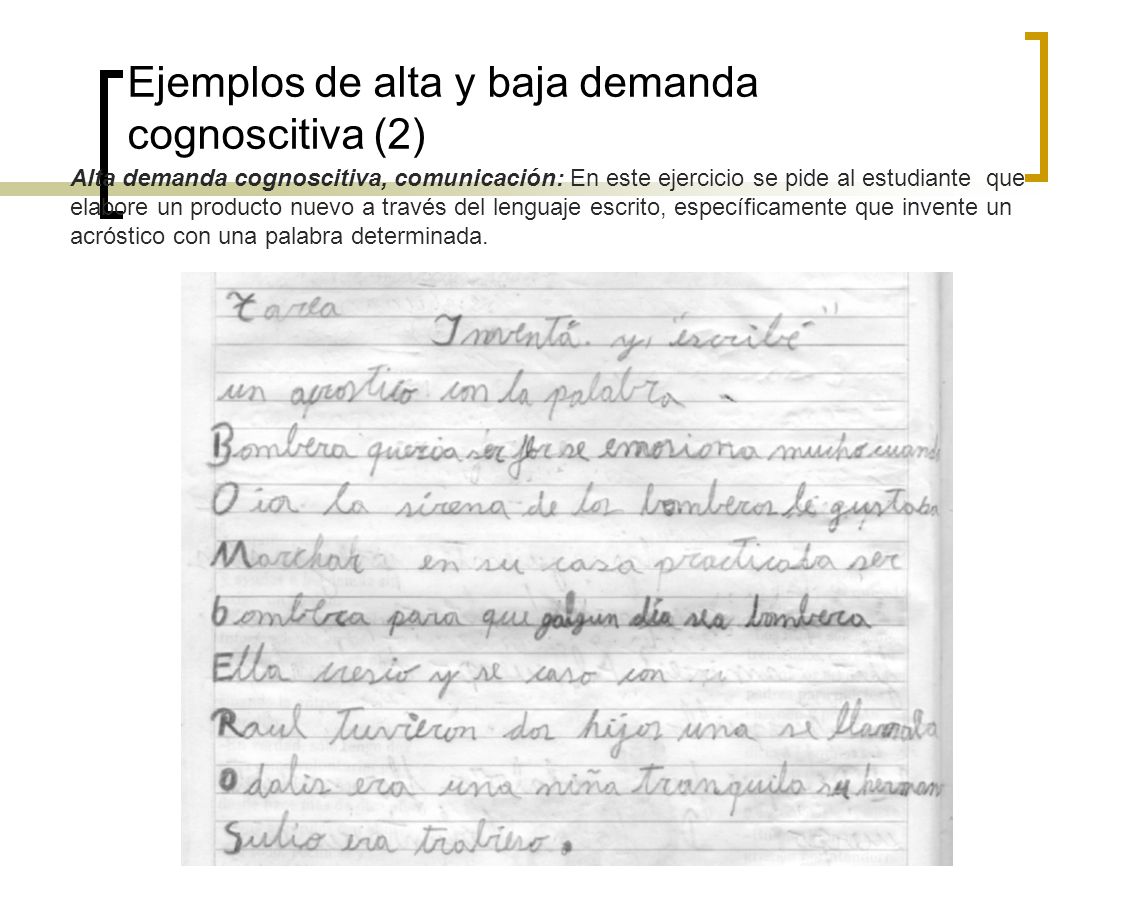 Ejemplos de alta y baja demanda
cognoscitiva (2)
Alta demanda cognoscitiva, comunicación: En este ejercicio se pide al estudiante que
elabore un producto nuevo a través del lenguaje escrito, específicamente que invente un
acróstico con una palabra determinada.
Tarea
Inventá y, "escribé"
un acrostico con la palabra
Bombera queria ser se emosiona mucho cuando
Oia la sirena de los bomberos le gustaba
Marchar en su casa practicaba ser
bombera para que algun día sea bombera
Ella cresio y se caso con
Raul tuvieron dos hijos una se llamaba
Odalis era una niña tranquila su herman
Sulio era trabieso.